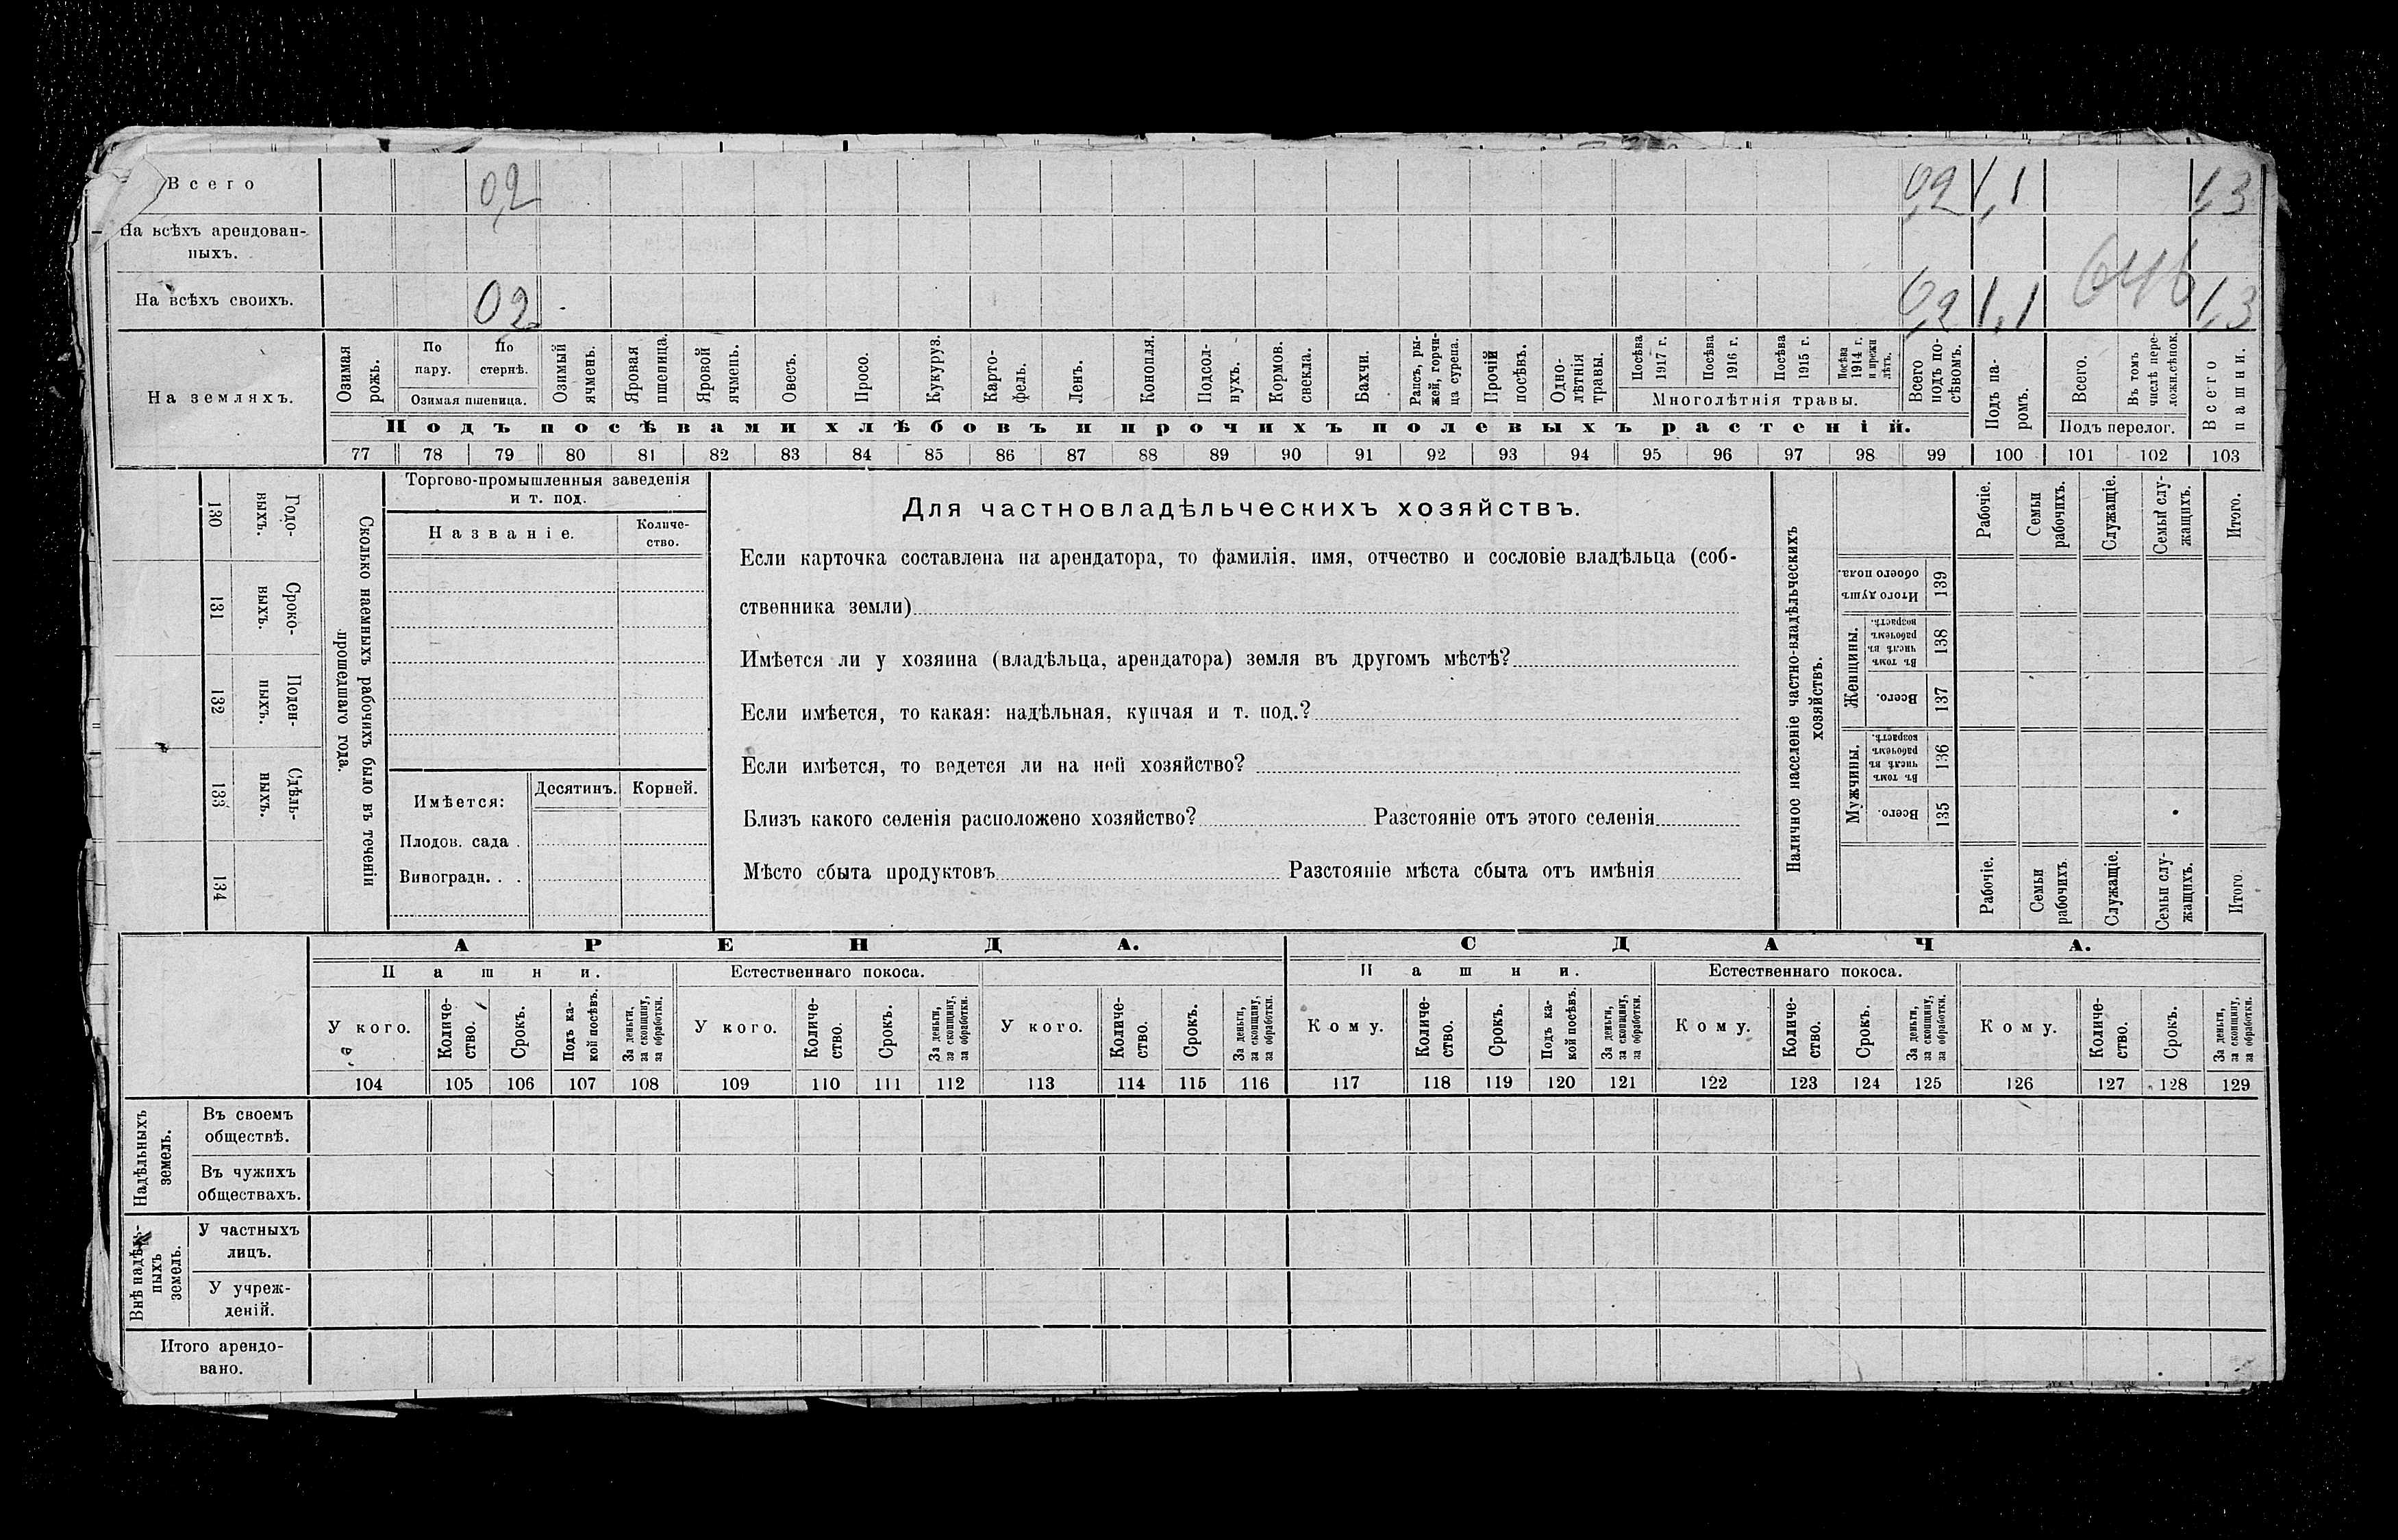 Всего 0,2 0,2 1,1 1,3
На всѣхъ арендован-
ныхъ.
На всѣхъ своихъ. 0,2 0,2 1,1 1,3
На земляхъ.
Озимая рожь.
По пару.
По стернѣ.
Озимая пшеница.
Озимый ячмень.
Яровая пшеница.
Яровой ячмень.
Овесъ.
Просо.
Кукуруз.
Карто-
фель.
Ленъ.
Конопля.
Подсол-
нухъ.
Кормов. свекла.
Бахчи.
Рапсъ, ры-
жей, горчи-
ца сурепа.
Прочій посѣвъ.
Одно-
лѣтнія травы.
Посѣва 1917 г.
Посѣва 1916 г.
Посѣва 1915 г.
Посѣва 1914 г. и прежн лѣтъ.
Многолѣтнія травы.
Всего подъ по-
сѣвомъ.
Подъ па-
ромъ.
Всего.
Въ томъ числѣ пере-
ложн.сѣнок.
Подъ перелог.
Всего пашни.
Подъ посѣвами хлѣбовъ и прочихъ полевыхъ растеній.
77 78 79 80 81 82 83 84 85 86 87 88 89 90 91 92 93 94 95 96 97 98 99 100 101 102 103
130 Годо-
ныхъ.
131 Сроко-
ныхъ.
132 Поден-
ныхъ.
133 Сдѣль-
ныхъ.
134
Сколько наемныхъ рабочихъ было въ теченіи
прошедшаго года.
Торгово-промышленныя заведенія
и т. под.
Названіе.
Количе-
ство.
Имѣется:
Десятинъ.
Корней.
Плодов. сада .
Виноградн. . .
Для частновладѣльческихъ хозяйствъ.
Если карточка составлена на арендатора, то фамилія, имя, отчество и сословіе владѣльца (соб-
ственника земли)
Имѣется ли у хозяина (владѣльца, арендатора) земля въ другомъ мѣстѣ?
Если имѣется, то какая: надѣльная, купчая и т. под.?
Если имѣется, то ведется ли на ней хозяйство?
Близъ какого селенія расположено хозяйство? Разстояніе отъ этого селенія
Мѣсто сбыта продуктовъ Разстояніе мѣста сбыта отъ имѣнія
Наличное населеніе частно-владѣльческихъ
хозяйствъ.
Рабочіе.
Семьи рабочихъ.
Служащіе.
Семьи слу-
жащихъ.
Итого.
Итого душъ обоего пола. 139
Женщины.
Въ томъ числѣ въ рабочемъ возрастѣ. 138
Всего. 137
Мужчины.
Въ томъ числѣ въ рабочемъ возрастѣ. 136
Всего. 135
Рабочіе.
Семьи рабочихъ
Служащіе.
Семьи слу-
жащихъ.
Итого.
АРЕНДА. СДАЧА.
Пашни. Естественнаго покоса. Пашни. Естественнаго покоса.
У кого.
Количе-
ство.
Срокъ.
Подъ ка-
кой посѣвъ.
За деньги,
за скопщину,
за обработки.
У кого.
Количе-
ство.
Срокъ.
За деньги,
за скопщину,
за обработки.
У кого.
Количе-
ство.
Срокъ.
За деньги,
за скопщину,
за обработки.
Кому.
Количе-
ство.
Срокъ.
Подъ ка-
кой посѣвъ.
За деньги,
за скопщину,
за обработки.
Кому.
Количе-
ство.
Срокъ.
За деньги,
за скопщину,
за обработки.
Кому.
Количе-
ство.
Срокъ.
За деньги,
за скопщину,
за обработки.
104 105 106 107 108 109 110 111 112 113 114 115 116 117 118 119 120 121 122 123 124 125 126 127 128 129
Надѣльныхъ
земель.
Въ своемъ
обществѣ.
Въ чужихъ
обществахъ.
Внѣ надѣль-
ныхъ
земель.
У частныхъ
лицъ.
У учреж-
деній.
Итого арендо-
вано.